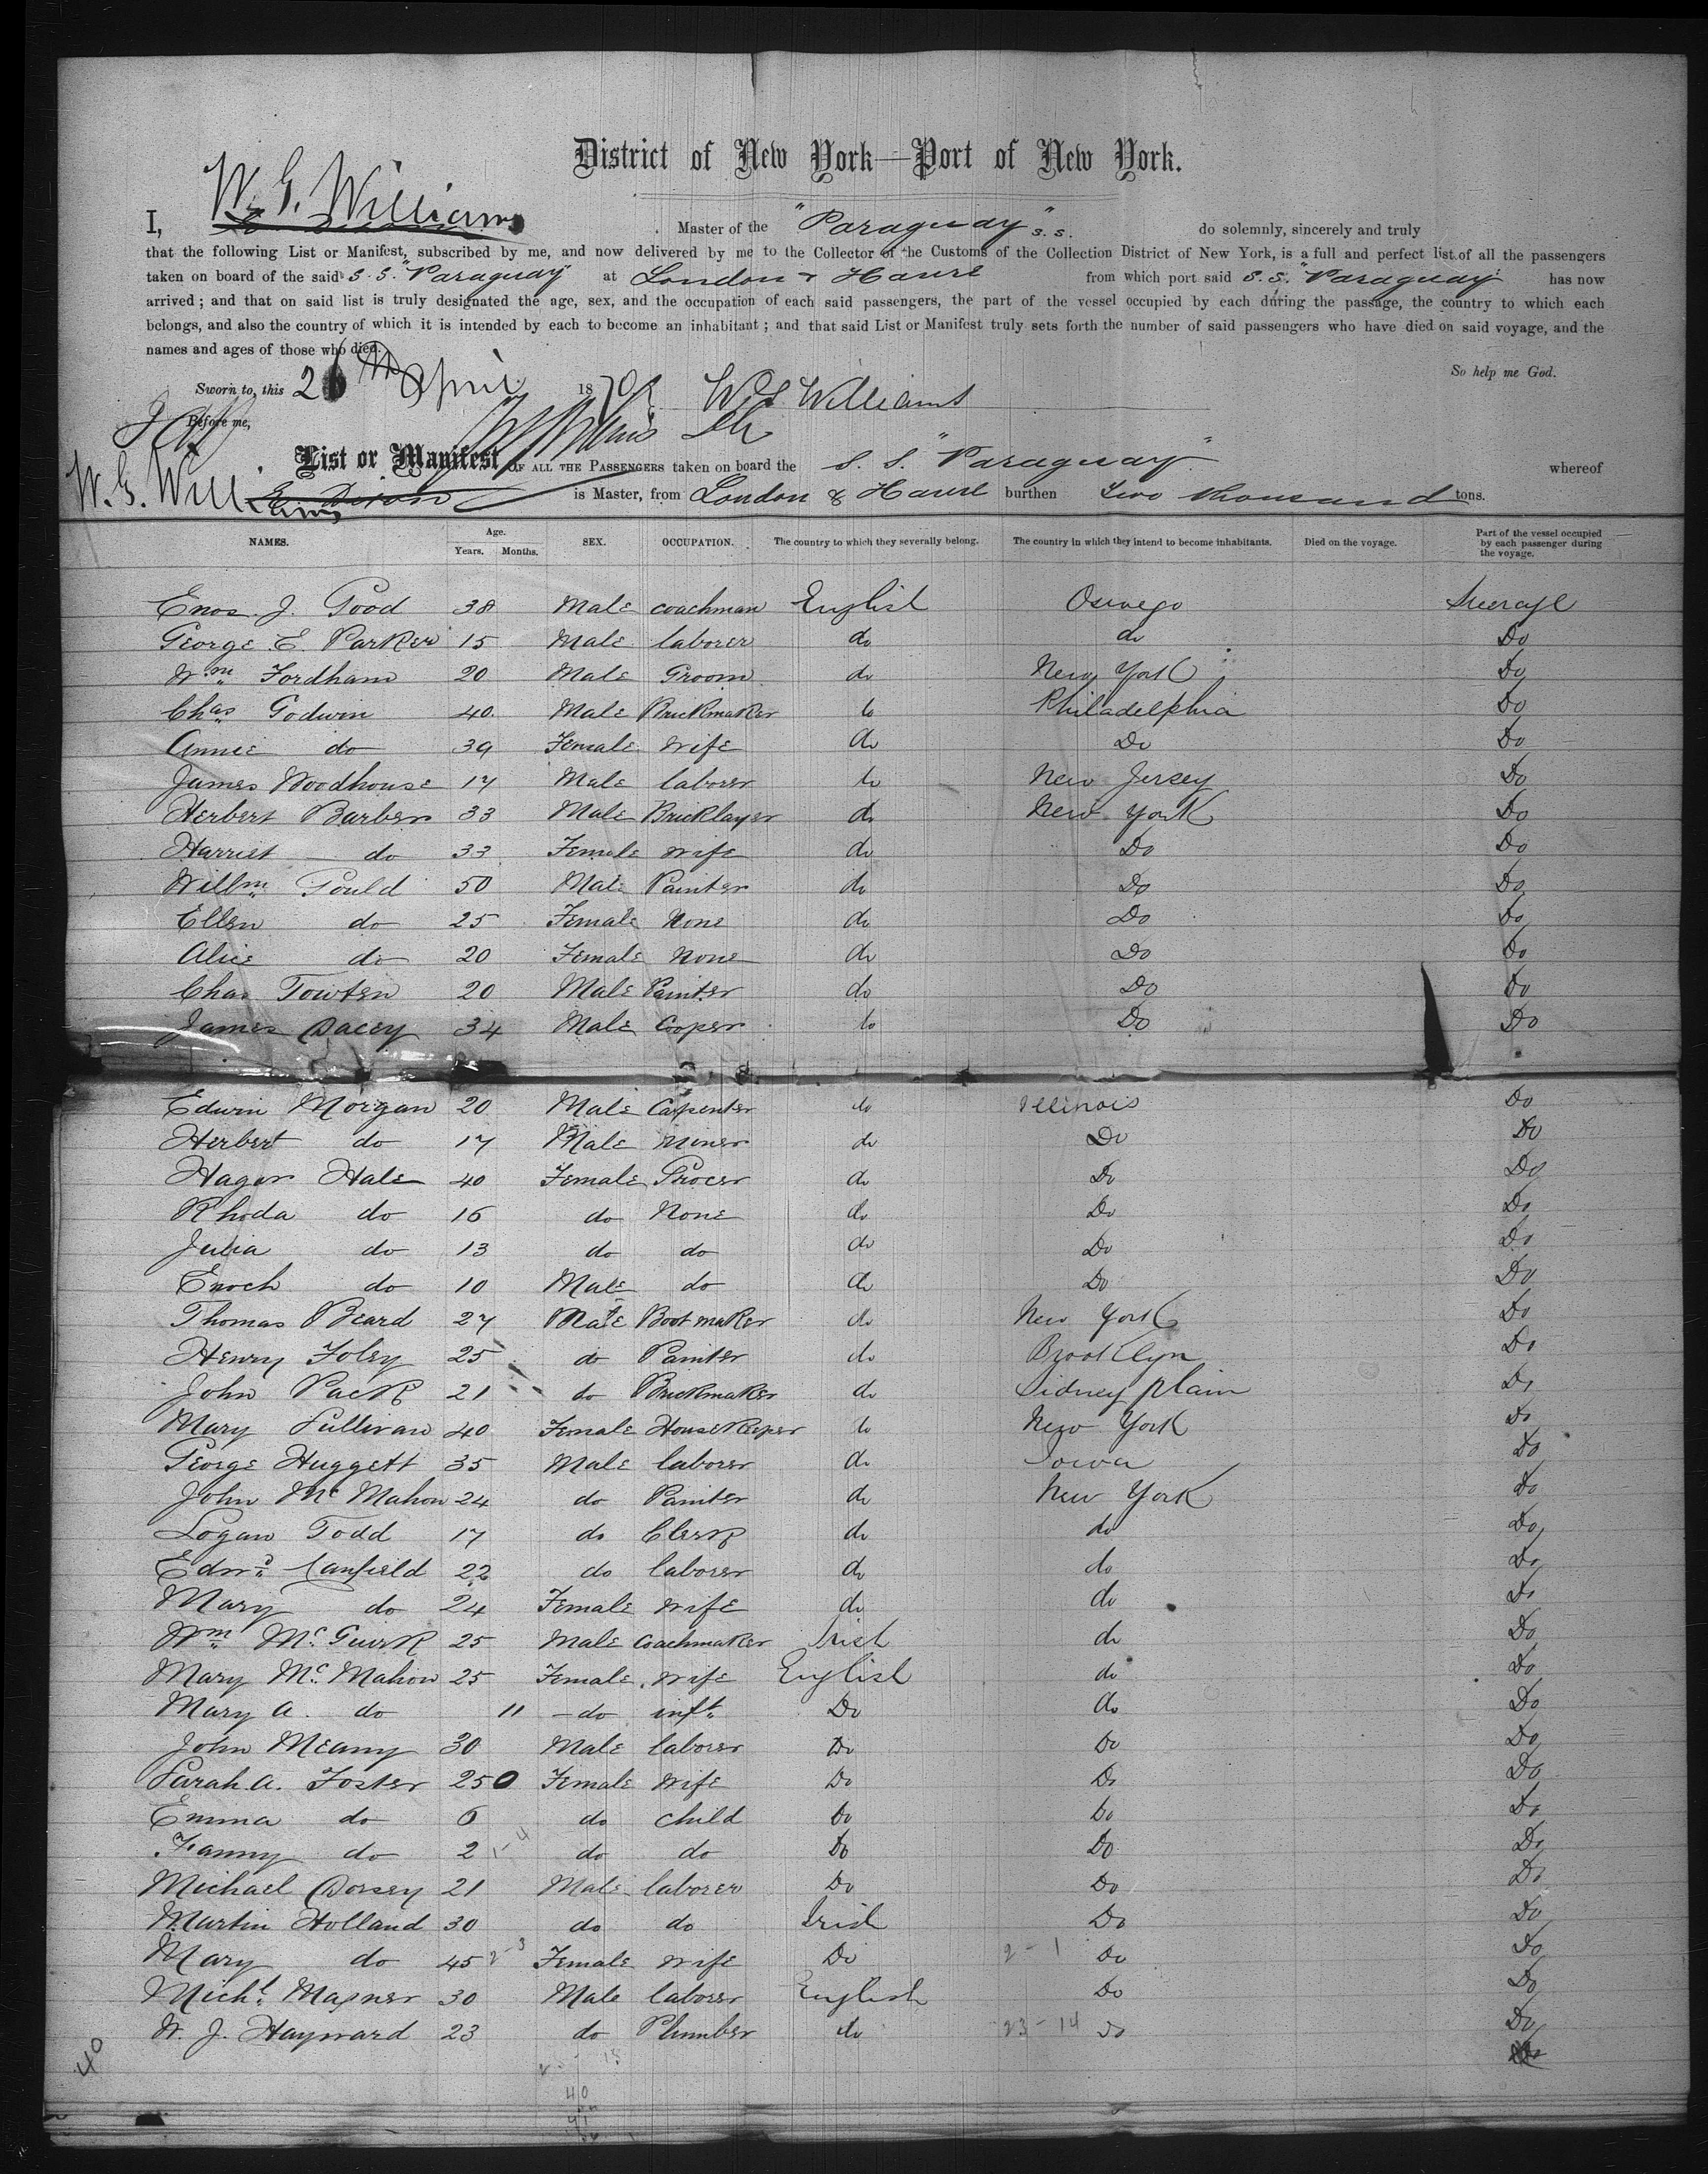 District of New York—Port of New York.
I, W. G. Williams Master of the "Paraguay" s.s. do solemnly, sincerely and truly
that the following List or Manifest, subscribed by me, and now delivered by me to the Collector of the Customs of the Collection District of New York, is a full and perfect list of all the passengers
taken on board of the said S.S. "Paraguay" at London & Havre from which port said S.S. "Paraguay" has now
arrived; and that on said list is truly designated the age, sex, and the occupation of each said passengers, the part of the vessel occupied by each during the passage, the country to which each
belongs, and also the country of which it is intended by each to become an inhabitant; and that said List or Manifest truly sets forth the number of said passengers who have died on said voyage, and the
names and ages of those who died.
So help me God.
Sworn to, this 26th April 18 W G Williams
Before me,
List or Manifest OF ALL THE PASSENGERS taken on board the S. S. "Paraguay" whereof
W. G. Williams is Master, from London & Havre burthen Two thousand tons.
NAMES. Age. Years. Months. SEX. OCCUPATION. The country to which they severally belong. The country in which they intend to become inhabitants. Died on the voyage. Part of the vessel occupied by each passenger during the voyage.
Enos. J. Good 38 Male coachman English Oswego Steerage
George E. Parker 15 Male laborer do do Do
Wm Fordham 20 Male Groom do New York Do
Chas Godwin 40 Male Brickmaker do Philadelphia Do
Annie do 39 Female wife do Do Do
James Woodhouse 17 Male laborer do New Jersey Do
Herbert Barber 33 Male Bricklayer do New York Do
Harriet do 33 Female wife do Do Do
Willm Gould 50 Male Painter do Do Do
Ellen do 25 Female None do Do Do
Alice do 20 Female None do Do Do
Chas Towten 20 Male Painter do Do Do
James Dacey 34 Male Cooper do Do Do
Edwin Morgan 20 Male Carpenter do Illinois Do
Herbert do 17 Male miner do Do Do
Hagar Hale 40 Female Grocer do Do Do
Rhoda do 16 do None do Do Do
Julia do 13 do do do Do Do
Enoch do 10 Male do do Do Do
Thomas Beard 27 Male Bootmaker do New York Do
Henry Foley 25 do Painter do Brooklyn Do
John Pack 21 do Brickmaker do Sidney plain Do
Mary Sullivan 40 Female HouseKeeper do New York Do
George Huggett 35 Male laborer do Iowa Do
John Mc Mahon 24 do Painter do New York Do
Logan Todd 17 do Clerk do do Do
Edwd Canfield 22 do laborer do do Do
Mary do 24 Female wife do do Do
Wm Mc Guirk 25 Male Coachmaker Irish do Do
Mary Mc Mahon 25 Female wife English do Do
Mary A. do 11 do inft Do do Do
John Meany 30 Male laborer Do Do Do
Sarah A. Foster 25 0 Female Wife Do Do Do
Emma do 6 do child Do Do Do
Fanny do 2 do do Do Do Do
Michael Dorsey 21 Male laborer Do Do Do
Martin Holland 30 do do Irish Do Do
Mary do 45 2-3 Female wife Do 2-1 Do Do
Michl Magner 30 Male laborer English Do Do
W. J. Hayward 23 do Plumber do 23-14 Do Do
40
40